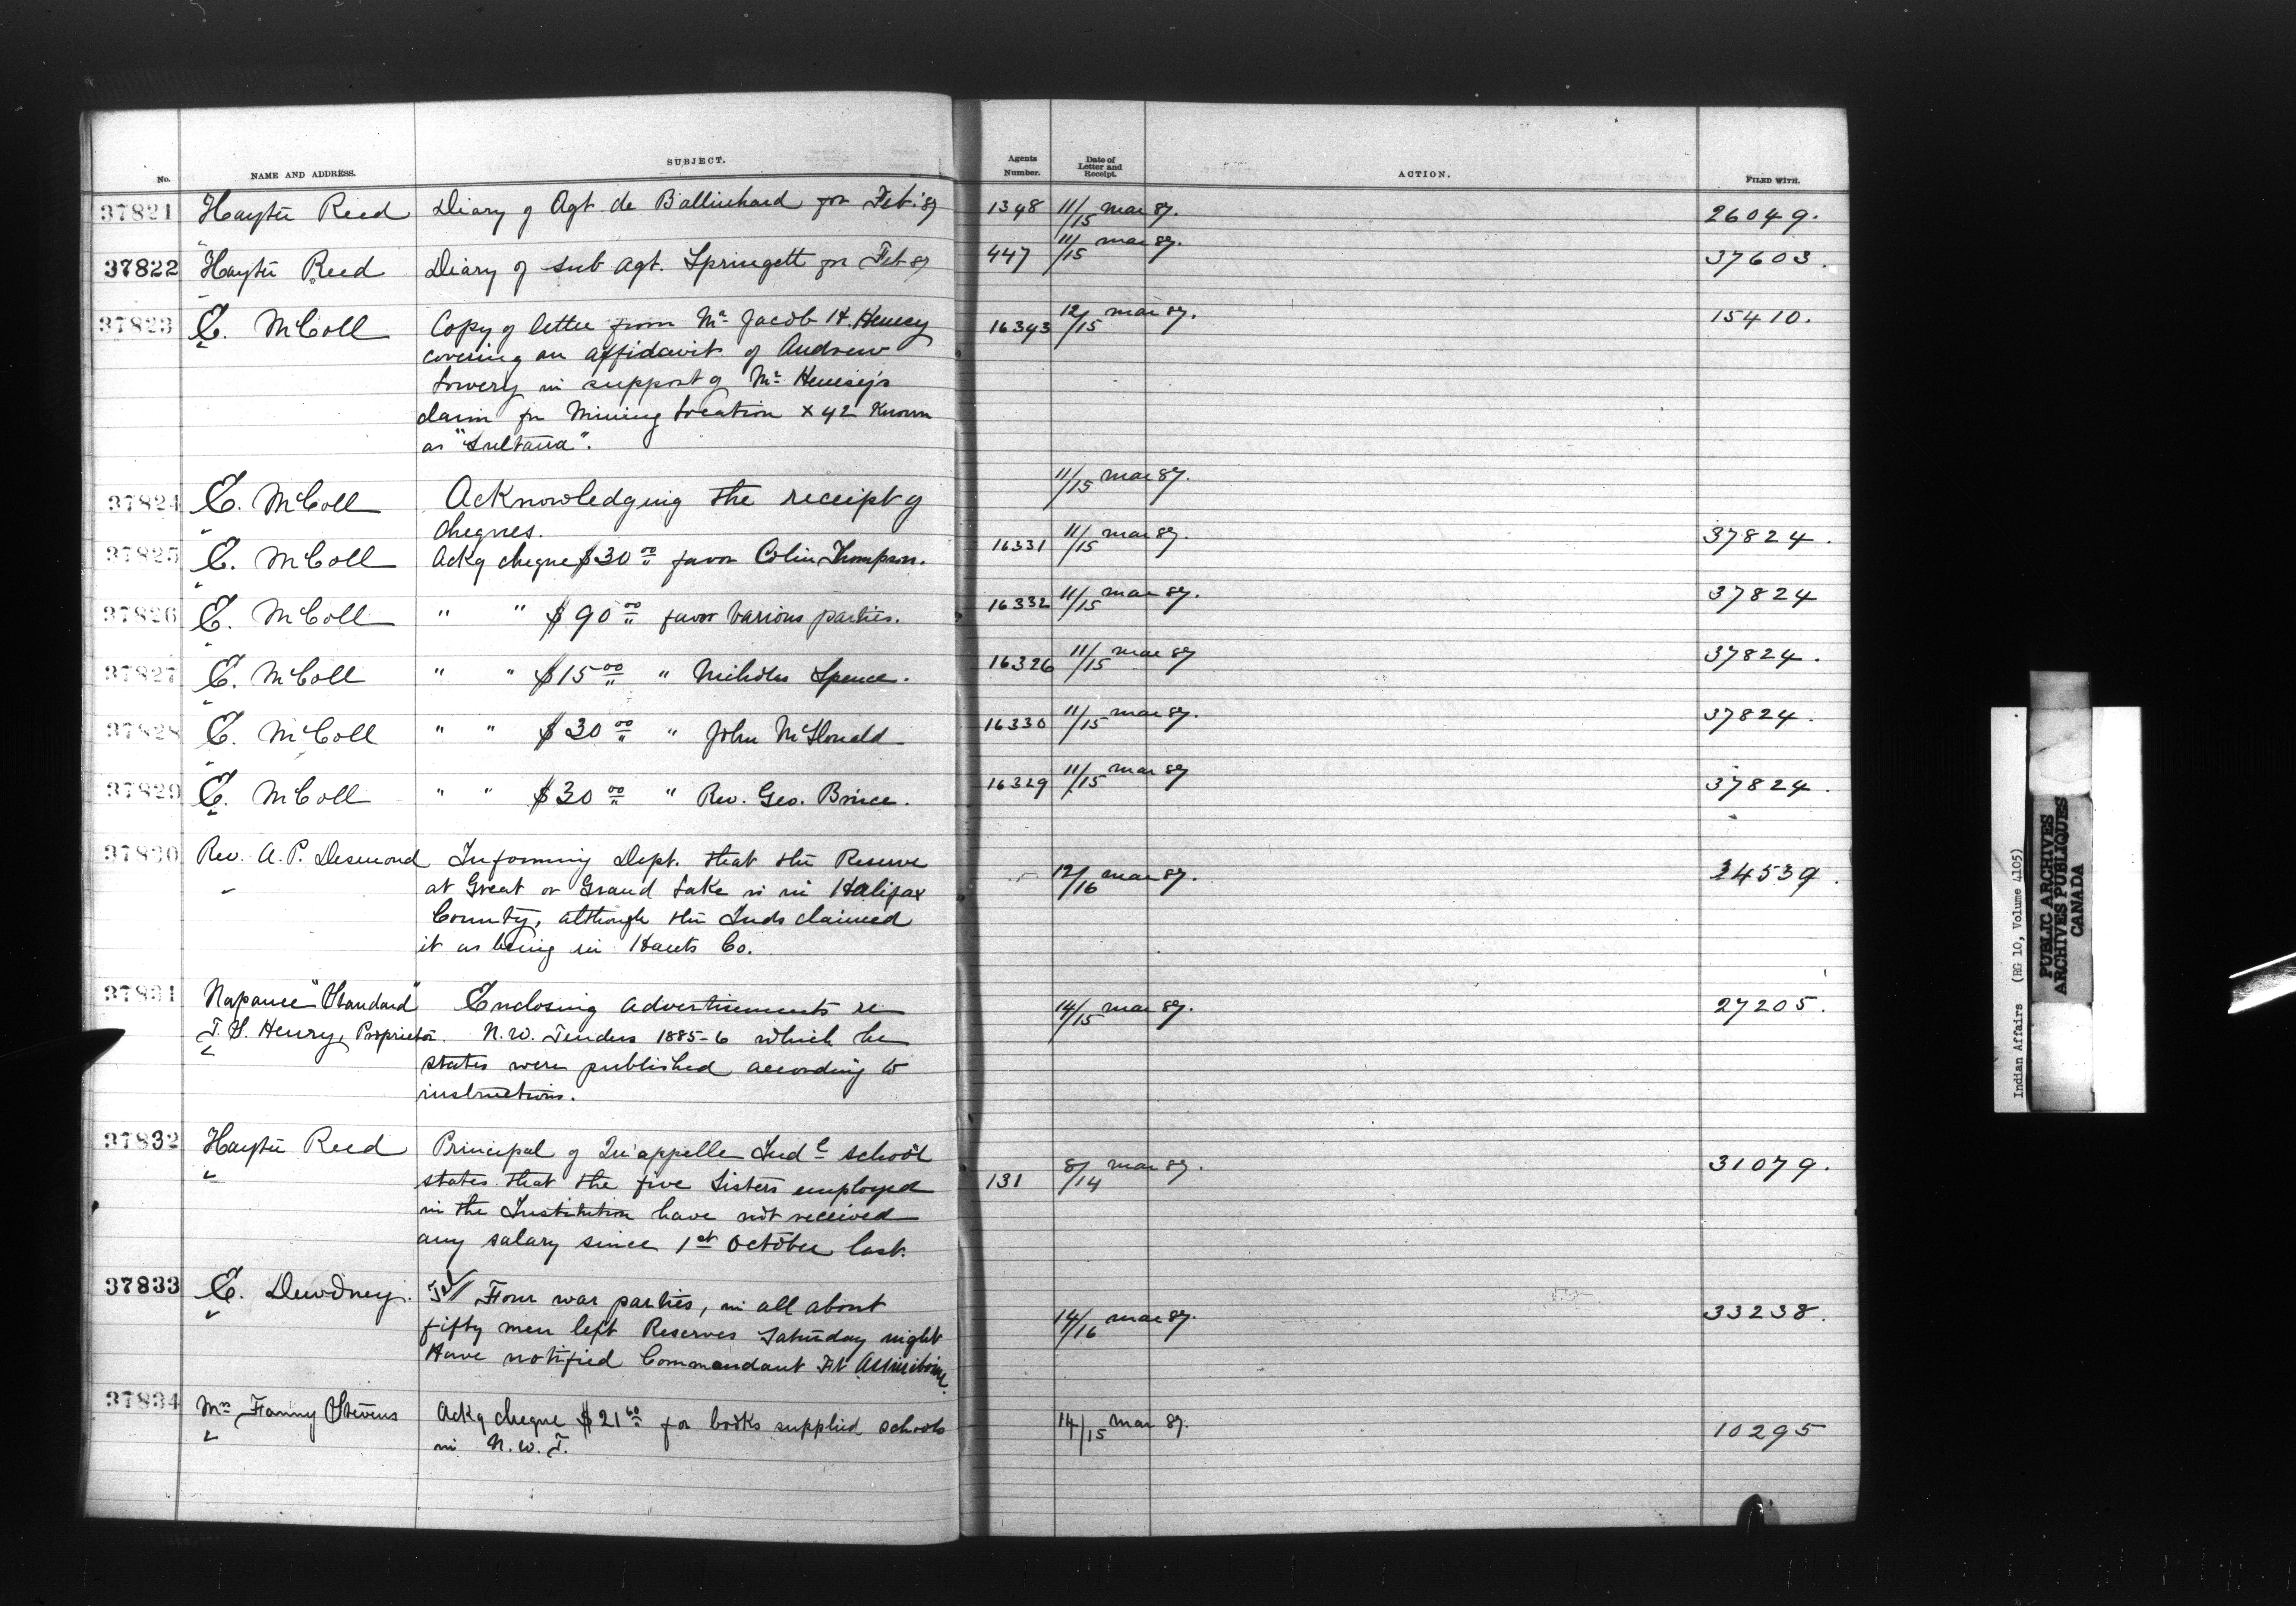 No. NAME AND ADDRESS. SUBJECT. Agents Number. Date of Letter and Receipt. ACTION. FILED WITH.
37821 Hayter Reed Diary of Agt. de Ballinhard for Feb. '87 1348 11/15 Mar 87. 26049.
37822 Hayter Reed Diary of Sub Agt. Springett for Feb 87 447 11/15 Mar 87. 37603.
37823 E. McColl Copy of letter from Mr Jacob H. Henesy 16343 12/15 Mar 87. 15410.
covering an affidavit of Andrew
Lowery in support of Mr Henesy's
claim for Mining Location X 42 Known
as "Sultana".
37824 E. McColl Acknowledging the receipt of 11/15 Mar 87.
cheques.
37825 E. McColl Ackg cheque $30 00 favor Colin Thompson. 16331 11/15 Mar 87. 37824.
37826 E. McColl " " $90 00 favor various parties. 16332 11/15 Mar 87. 37824
37827 E. McColl " " $15 00 " Nicholas Spence. 16326 11/15 Mar 87 37824.
37828 E. McColl " " $30 00 " John McDonald 16330 11/15 Mar 87. 37824.
37829 E. McColl " " $30 00 " Rev. Geo. Bruce. 16329 11/15 Mar 87 37824.
37830 Rev. A. P. Desmond Informing Dept. that the Reserve 12/16 Mar 87. 34539.
at Great or Grand Lake is in Halifax
County, although the Inds claimed
it as being in Hants Co.
37831 Napanee "Standard" Enclosing advertisements re 14/15 Mar 87. 27205.
T. S. Henry, Proprietor. N.W. Tenders 1885-6 which he
states were published according to
instructions.
37832 Hayter Reed Principal of Qu'appelle Indl School 131 8/14 Mar 87. 31079.
states that the five Sisters employed
in the Institution have not received
any salary since 1st October last.
37833 E. Dewdney. Four war parties, in all about 14/16 Mar 87. 33238.
fifty men left Reserves Saturday night
Have notified Commandant Ft Assiniboine.
37834 Mrs Fanny Stevens Ackg cheque $21 60 for books supplied schools 14/15 Mar 87. 10295
in N.W.T.
Indian Affairs (RG 10, Volume 4105)
PUBLIC ARCHIVES
ARCHIVES PUBLIQUES
CANADA